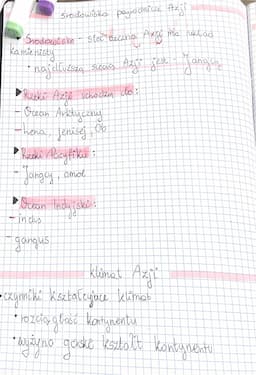 środowisko przyrodnicze Azji
Środowisko - sieć rzeczna Azji ma układ
• najdłuższą rzeką Azji jest - Jangcy
Rzeki Azji uchodzą do:
- Ocean Arktyczny
- Lena, Jenisej, Ob
Rzeki Pacyfiku:
- Jangcy, amol
Ocean Indyjski:
- indus
- gangus
klimat Azji
• czynniki kształtujące klimat
• rozciągłość kontynentu
• kształt kontynentu